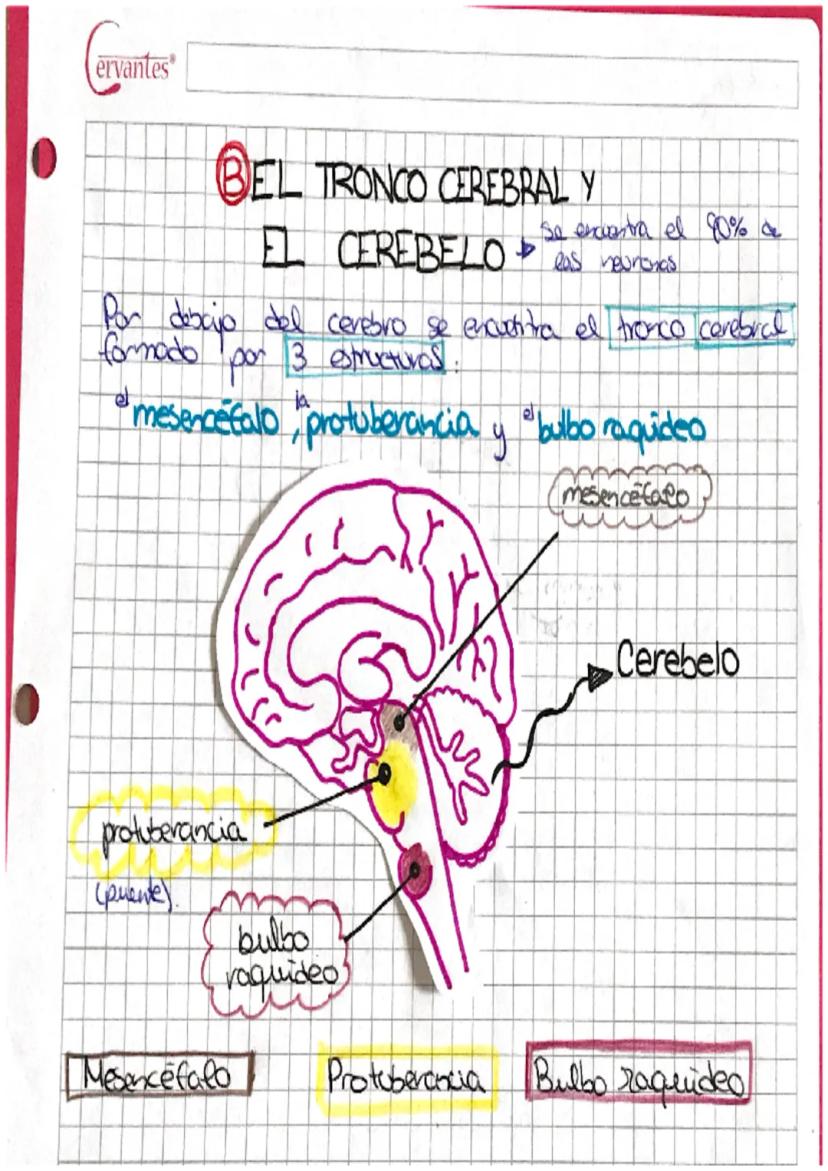 Cervantes®
B EL TRONCO CEREBRAL Y
EL CEREBELO → se encuentra el 90% de
las neuronas
Por debajo del cerebro se encuentra el tronco cerebral
formado por 3 estructuras:
el mesencéfalo, la protuberancia y el bulbo raquídeo
mesencéfalo
Cerebelo
protuberancia
(puente).
bulbo
raquídeo
Mesencéfalo
Protuberancia
Bulbo raquídeo